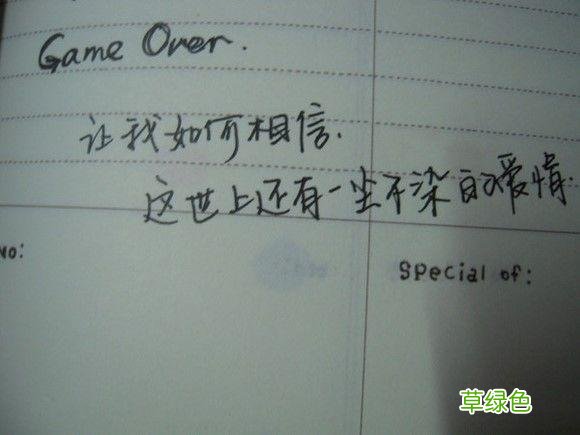 Game Over.
让我如何相信.
这世上还有一尘不染的爱情.
No:
Special of:
草绿色